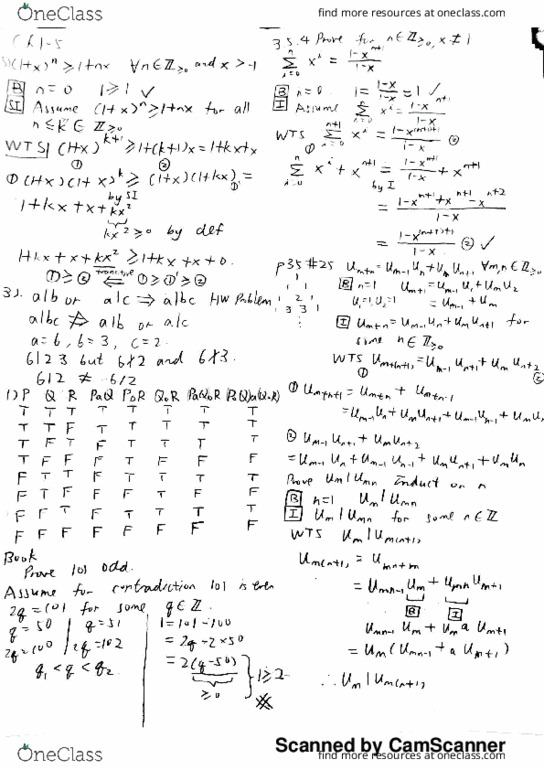 OneClass
find more resources at oneclass.com
Ch 1-5
5) (1+x)^n ≥ 1+nx ∀n∈ℤ≥0 and x > -1
B n=0 1≥1 ✓
SI Assume (1+x)^n ≥ 1+nx for all
n ≤ k ∈ ℤ≥0
WTS (1+x)^{k+1} ≥ 1+(k+1)x = 1+kx+x
① ②
① (1+x)(1+x)^k ≥ (1+x)(1+kx) =
by SI
1+kx+x+kx²
kx² ≥ 0 by def
1+kx+x+kx² ≥ 1+kx+x+0.
① ≥ ② transitive ⇐ ① ≥ ①' ≥ ②
3). a|b or a|c ⇒ a|bc HW Problem
a|bc ⇏ a|b or a|c
a=6, b=3, c=2.
6|2 3 but 6∤2 and 6∤3.
6|2 ≠ 6/2
1) P Q R PaQ PoR QoR PaQoR P(aQ)a(QoR)
T T T T T T T T
T T F T T T T T
T F T F T T T T
T F F F T F F F
F T T F T T T T
F T F F F T F F
F F T F T T T F
F F F F F F F F
Book
Prove 101 odd.
Assume for contradiction 101 is even
2q = 101 for some q ∈ ℤ.
q = 50 q = 51
2q = 100 2q = 102
q₁ < q < q₂
1 = 101-100
= 2q - 2×50
= 2(q-50)
≥ 0
1 ≥ 2
35.4 Prove for n∈ℤ≥0, x≠1
∑_{i=0}^{n} x^i = (1-x^{n+1})/(1-x)
B n=0 1 = (1-x)/(1-x) = 1 ✓
I Assume ∑_{i=0}^{n} x^i = (1-x^{n+1})/(1-x)
WTS ∑_{i=0}^{n+1} x^i = (1-x^{(n+1)+1})/(1-x) ②
①
∑_{i=0}^{n} x^i + x^{n+1} = (1-x^{n+1})/(1-x) + x^{n+1}
by I
= (1-x^{n+1}+x^{n+1}-x^{n+2})/(1-x)
= (1-x^{(n+1)+1})/(1-x) ② ✓
p35 #25 U_{m+n} = U_{m-1}U_n + U_mU_{n+1} ∀m,n∈ℤ≥0
B n=1 U_{m+1} = U_{m-1}U_1 + U_mU_2
U_1=U_2=1 = U_{m-1} + U_m
I U_{m+n} = U_{m-1}U_n + U_mU_{n+1} for
some n∈ℤ≥0
WTS U_{m+n+1} = U_{m-1}U_{n+1} + U_mU_{n+2}
① ②
① U_{m+n+1} = U_{m+n} + U_{m+n-1}
= U_{m-1}U_n + U_mU_{n+1} + U_{m-1}U_{n-1} + U_mU_n
② U_{m-1}U_{n+1} + U_mU_{n+2}
= U_{m-1}U_n + U_{m-1}U_{n-1} + U_mU_{n+1} + U_mU_n
Prove U_m|U_{mn} Induct on n
B n=1 U_m|U_{mn}
I U_m|U_{mn} for some n∈ℤ
WTS U_m|U_{m(n+1)}
U_{m(n+1)} = U_{mn+m}
= U_{mn-1}U_m + U_{mn}U_{m+1}
B I
U_{mn-1}U_m + U_m a U_{m+1}
= U_m(U_{mn-1} + a U_{m+1})
∴ U_m|U_{m(n+1)}
Scanned by CamScanner
OneClass
find more resources at oneclass.com